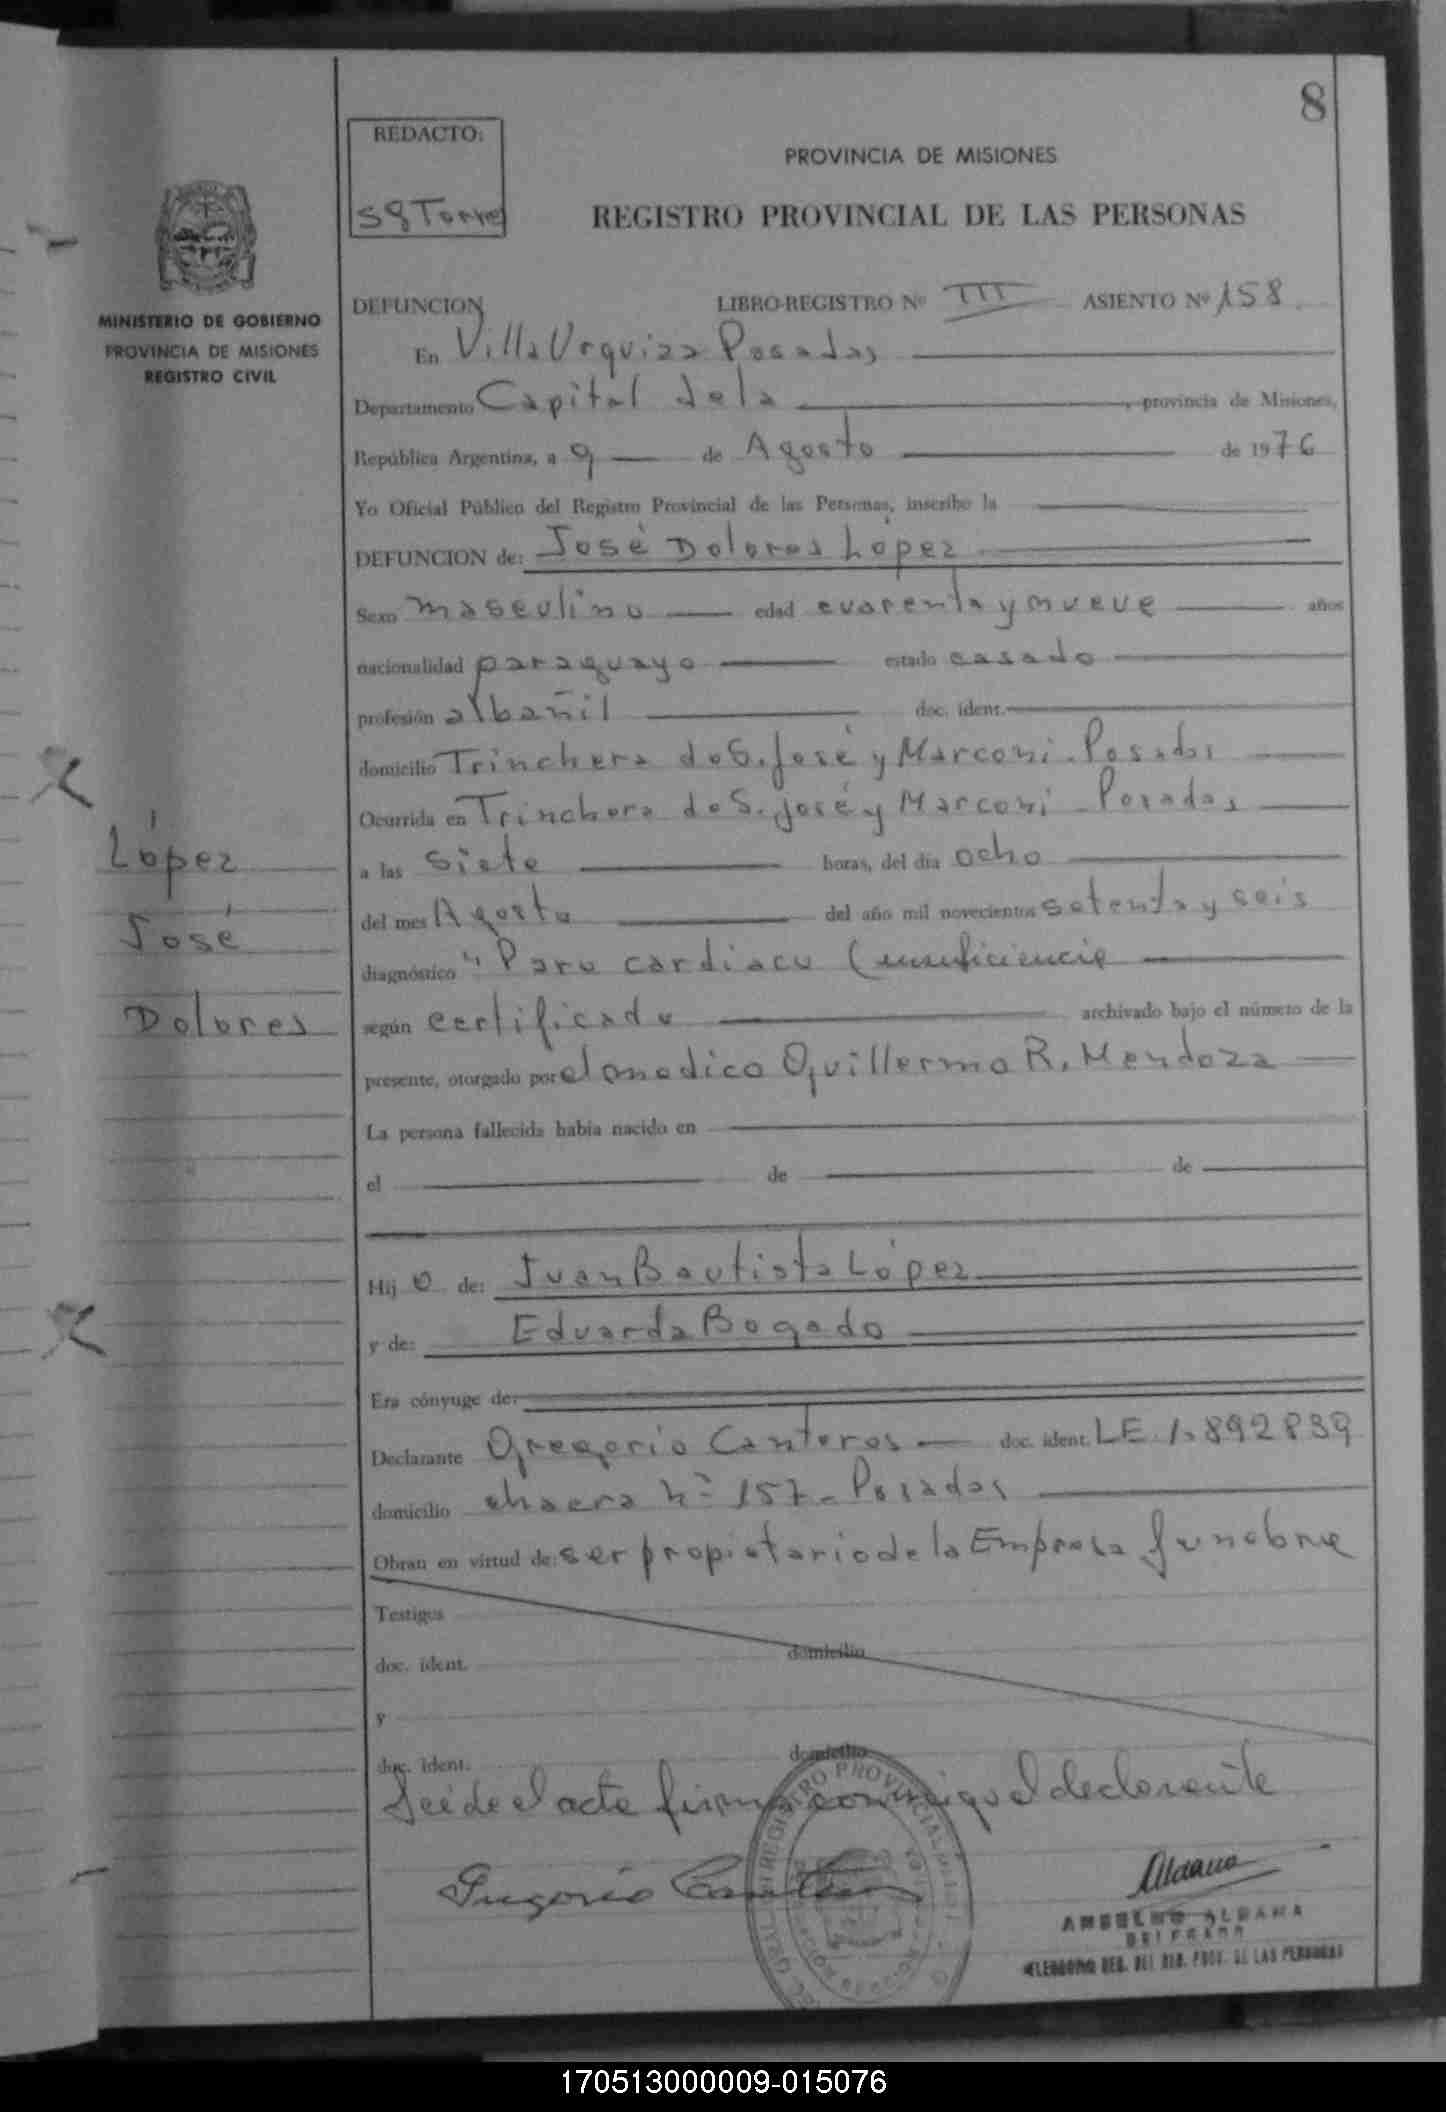 8
REDACTO:
PROVINCIA DE MISIONES
REGISTRO PROVINCIAL DE LAS PERSONAS
MINISTERIO DE GOBIERNO
PROVINCIA DE MISIONES
REGISTRO CIVIL
DEFUNCION LIBRO-REGISTRO Nº III ASIENTO Nº 158
En Villa Urquiza Posadas
Departamento Capital dela, provincia de Misiones,
República Argentina, a 9 de Agosto de 1976
Yo Oficial Público del Registro Provincial de las Personas, inscribo la
DEFUNCION de: José Dolores López
Sexo masculino edad cuarenta y nueve años
nacionalidad paraguayo estado casado
profesión albañil doc. ident.
domicilio Trinchera de S. José y Marconi - Posadas
Ocurrida en Trinchera de S. José y Marconi - Posadas
a las siete horas, del día ocho
del mes Agosto del año mil novecientos setenta y seis
diagnóstico " Paro cardiaco (insuficiencia
según certificado archivado bajo el número de la
presente, otorgado por el medico Guillermo R. Mendoza
La persona fallecida había nacido en
el de de
Hijo de: Juan Bautista López
y de: Eduarda Bogado
Era cónyuge de:
Declarante Gregorio Canteros doc. ident. LE 1.892839
domicilio chacra Nº 157 - Posadas
Obran en virtud de: ser propietario de la Empresa funebre
Testigos
doc. ident. domicilio
y
doc. ident. domicilio
Leída el acta firma conmigo el declarante
Gregorio Canteros
ANSELMO ALDANA
DEL REG. PROV. DE LAS PERSONAS
López
José
Dolores
170513000009-015076